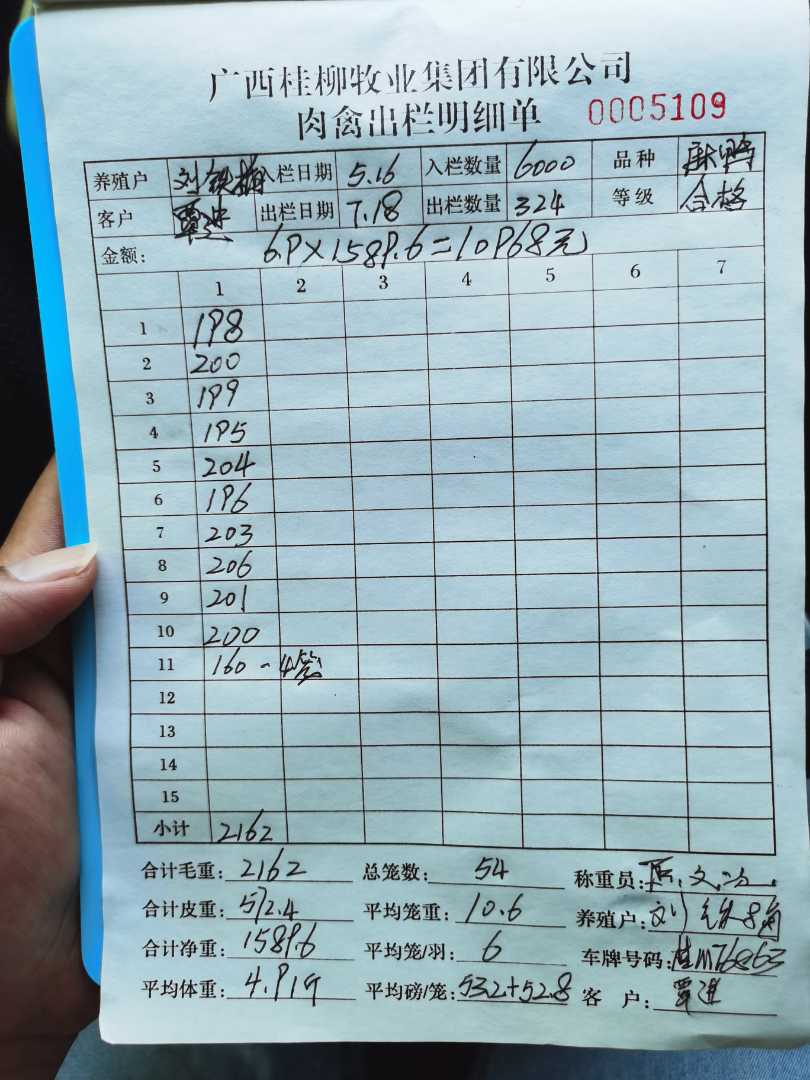 广西桂柳牧业集团有限公司
肉禽出栏明细单 0005109
养殖户 刘铁梅 入栏日期 5.16 入栏数量 6000 品种 麻鸭
客户 覃进 出栏日期 7.18 出栏数量 324 等级 合格
金额: 6.9×1589.6=10968元
1 2 3 4 5 6 7
1 198
2 200
3 199
4 195
5 204
6 196
7 203
8 206
9 201
10 200
11 160-4笼
12
13
14
15
小计 2162
合计毛重: 2162 总笼数: 54 称重员:
合计皮重: 572.4 平均笼重: 10.6 养殖户: 刘
合计净重: 1589.6 平均笼/羽: 6 车牌号码: 桂M76863
平均体重: 4.919 平均磅/笼: 532+52.8 客 户: 覃进